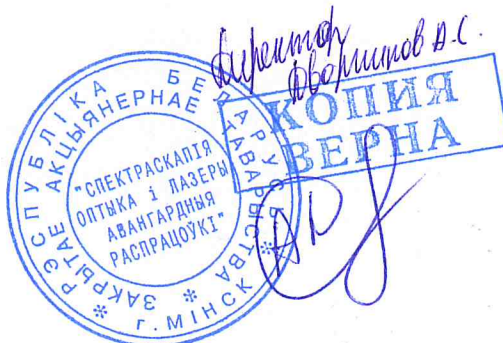 Директор
Дворников А.С.
КОПИЯ
ВЕРНА
РЭСПУБЛІКА БЕЛАРУСЬ
г. МІНСК
ЗАКРЫТАЕ АКЦЫЯНЕРНАЕ ТАВАРЫСТВА
"СПЕКТРАСКАПІЯ
ОПТЫКА і ЛАЗЕРЫ
АВАНГАРДНЫЯ
РАСПРАЦОЎКІ"